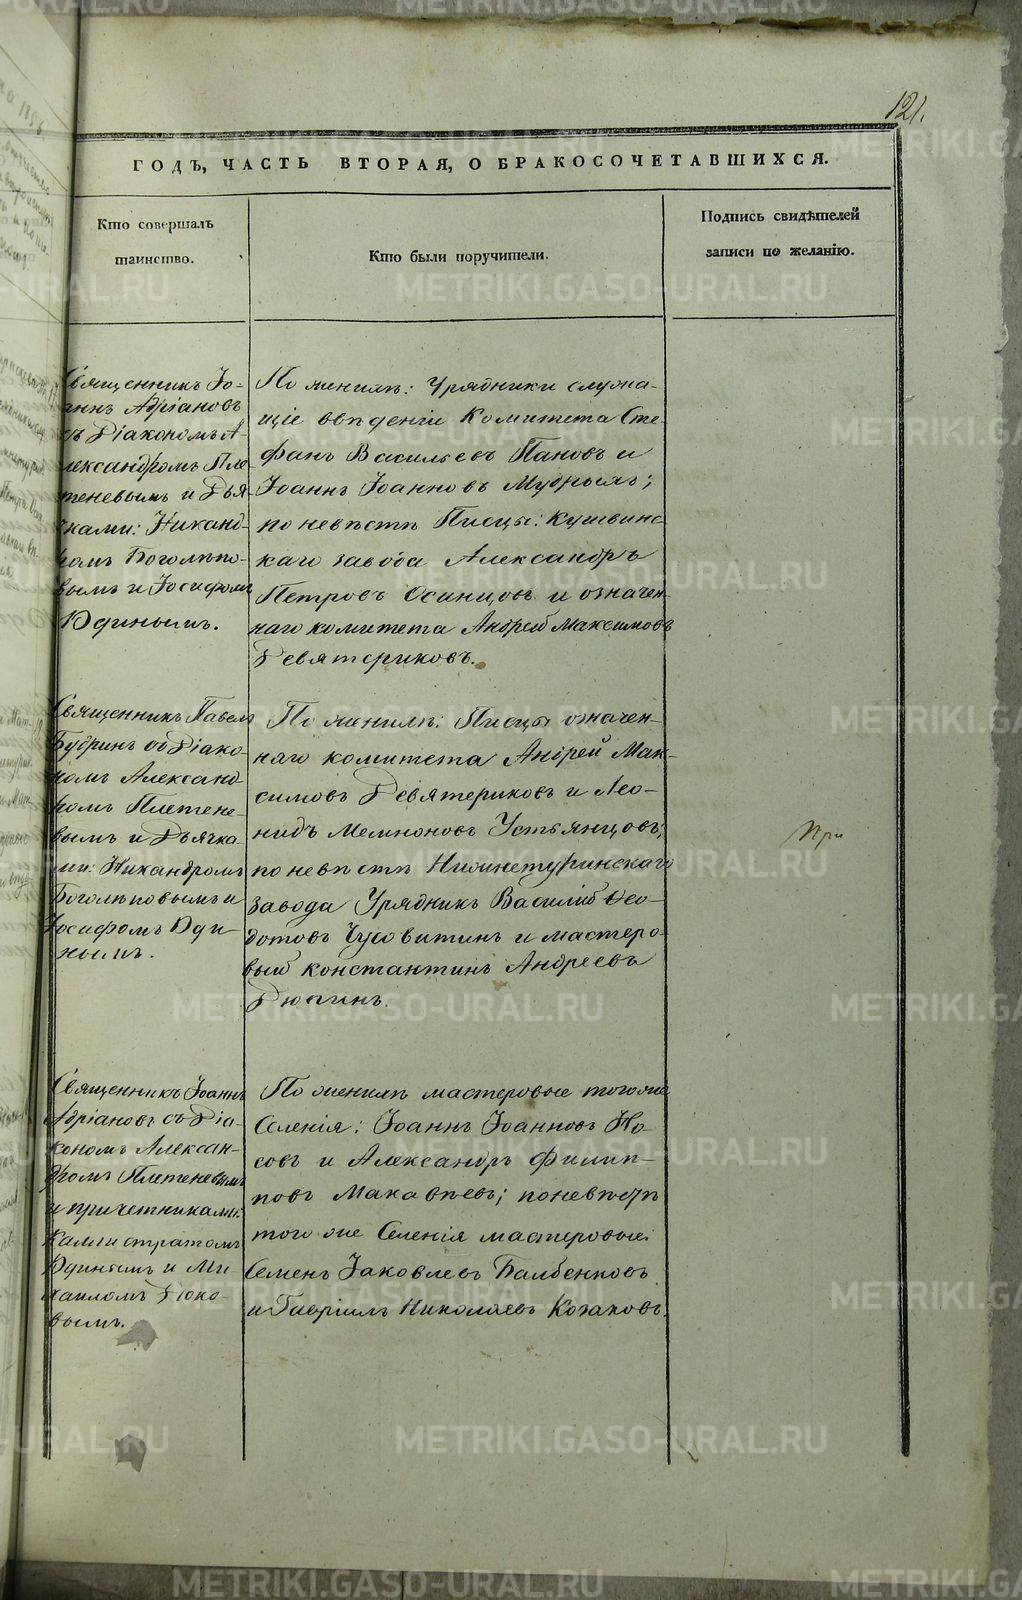 121.
ГОДЪ, ЧАСТЬ ВТОРАЯ, О БРАКОСОЧЕТАВШИХСЯ.
Кто совершалъ
таинство.
Кто были поручители.
Подпись свидѣтелей
записи по желанію.
Священникъ Іо-
аннъ Адріановъ
съ Діакономъ А-
лександромъ Пле-
теневымъ и Дья-
чками: Никанд-
ромъ Боголѣпо-
вымъ и Іосифомъ
Юдинымъ.
По женихѣ: Урядники служа-
щіе ввѣденіи Комитета Сте-
фанъ Васильевъ Пановъ и
Іоаннъ Іоанновъ Мудрымъ;
по невѣстѣ Писцы: Кушвинс-
каго завода Александръ
Петровъ Осинцовъ и означен-
наго комитета Андрей Максимовъ
Девятериковъ.
Священникъ Павелъ
Будринъ съ Діако-
номъ Александ-
ромъ Плетене-
вымъ и Дьячка-
ми: Никандромъ
Боголѣповымъ и
Іосифомъ Юди-
нымъ.
По женихѣ: Писцы означен-
наго комитета Андрей Мак-
симовъ Девятериковъ и Лео-
нидъ Мемноновъ Устьянцовъ;
по невѣстѣ Нижнетуринскаго
завода Урядникъ Василій Ѳео-
дотовъ Чусовитинъ и мастеро-
вый Константинъ Андреевъ
Дюгинъ.
При
Священникъ Іоаннъ
Адріановъ съ Діа-
кономъ Алексан-
дромъ Плетеневымъ
и причетниками:
Каллистратомъ
Юдинымъ и Ми-
хаиломъ Дюко-
вымъ.
По женихѣ мастеровые тогоже
Селенія: Іоаннъ Іоанновъ Но-
совъ и Александръ Филип-
повъ Макавѣевъ; по невѣстѣ
того же Селенія мастеровые:
Семенъ Іаковлевъ Балбенковъ
и Гавріилъ Николаевъ Козаковъ.
METRIKI.GASO-URAL.RU